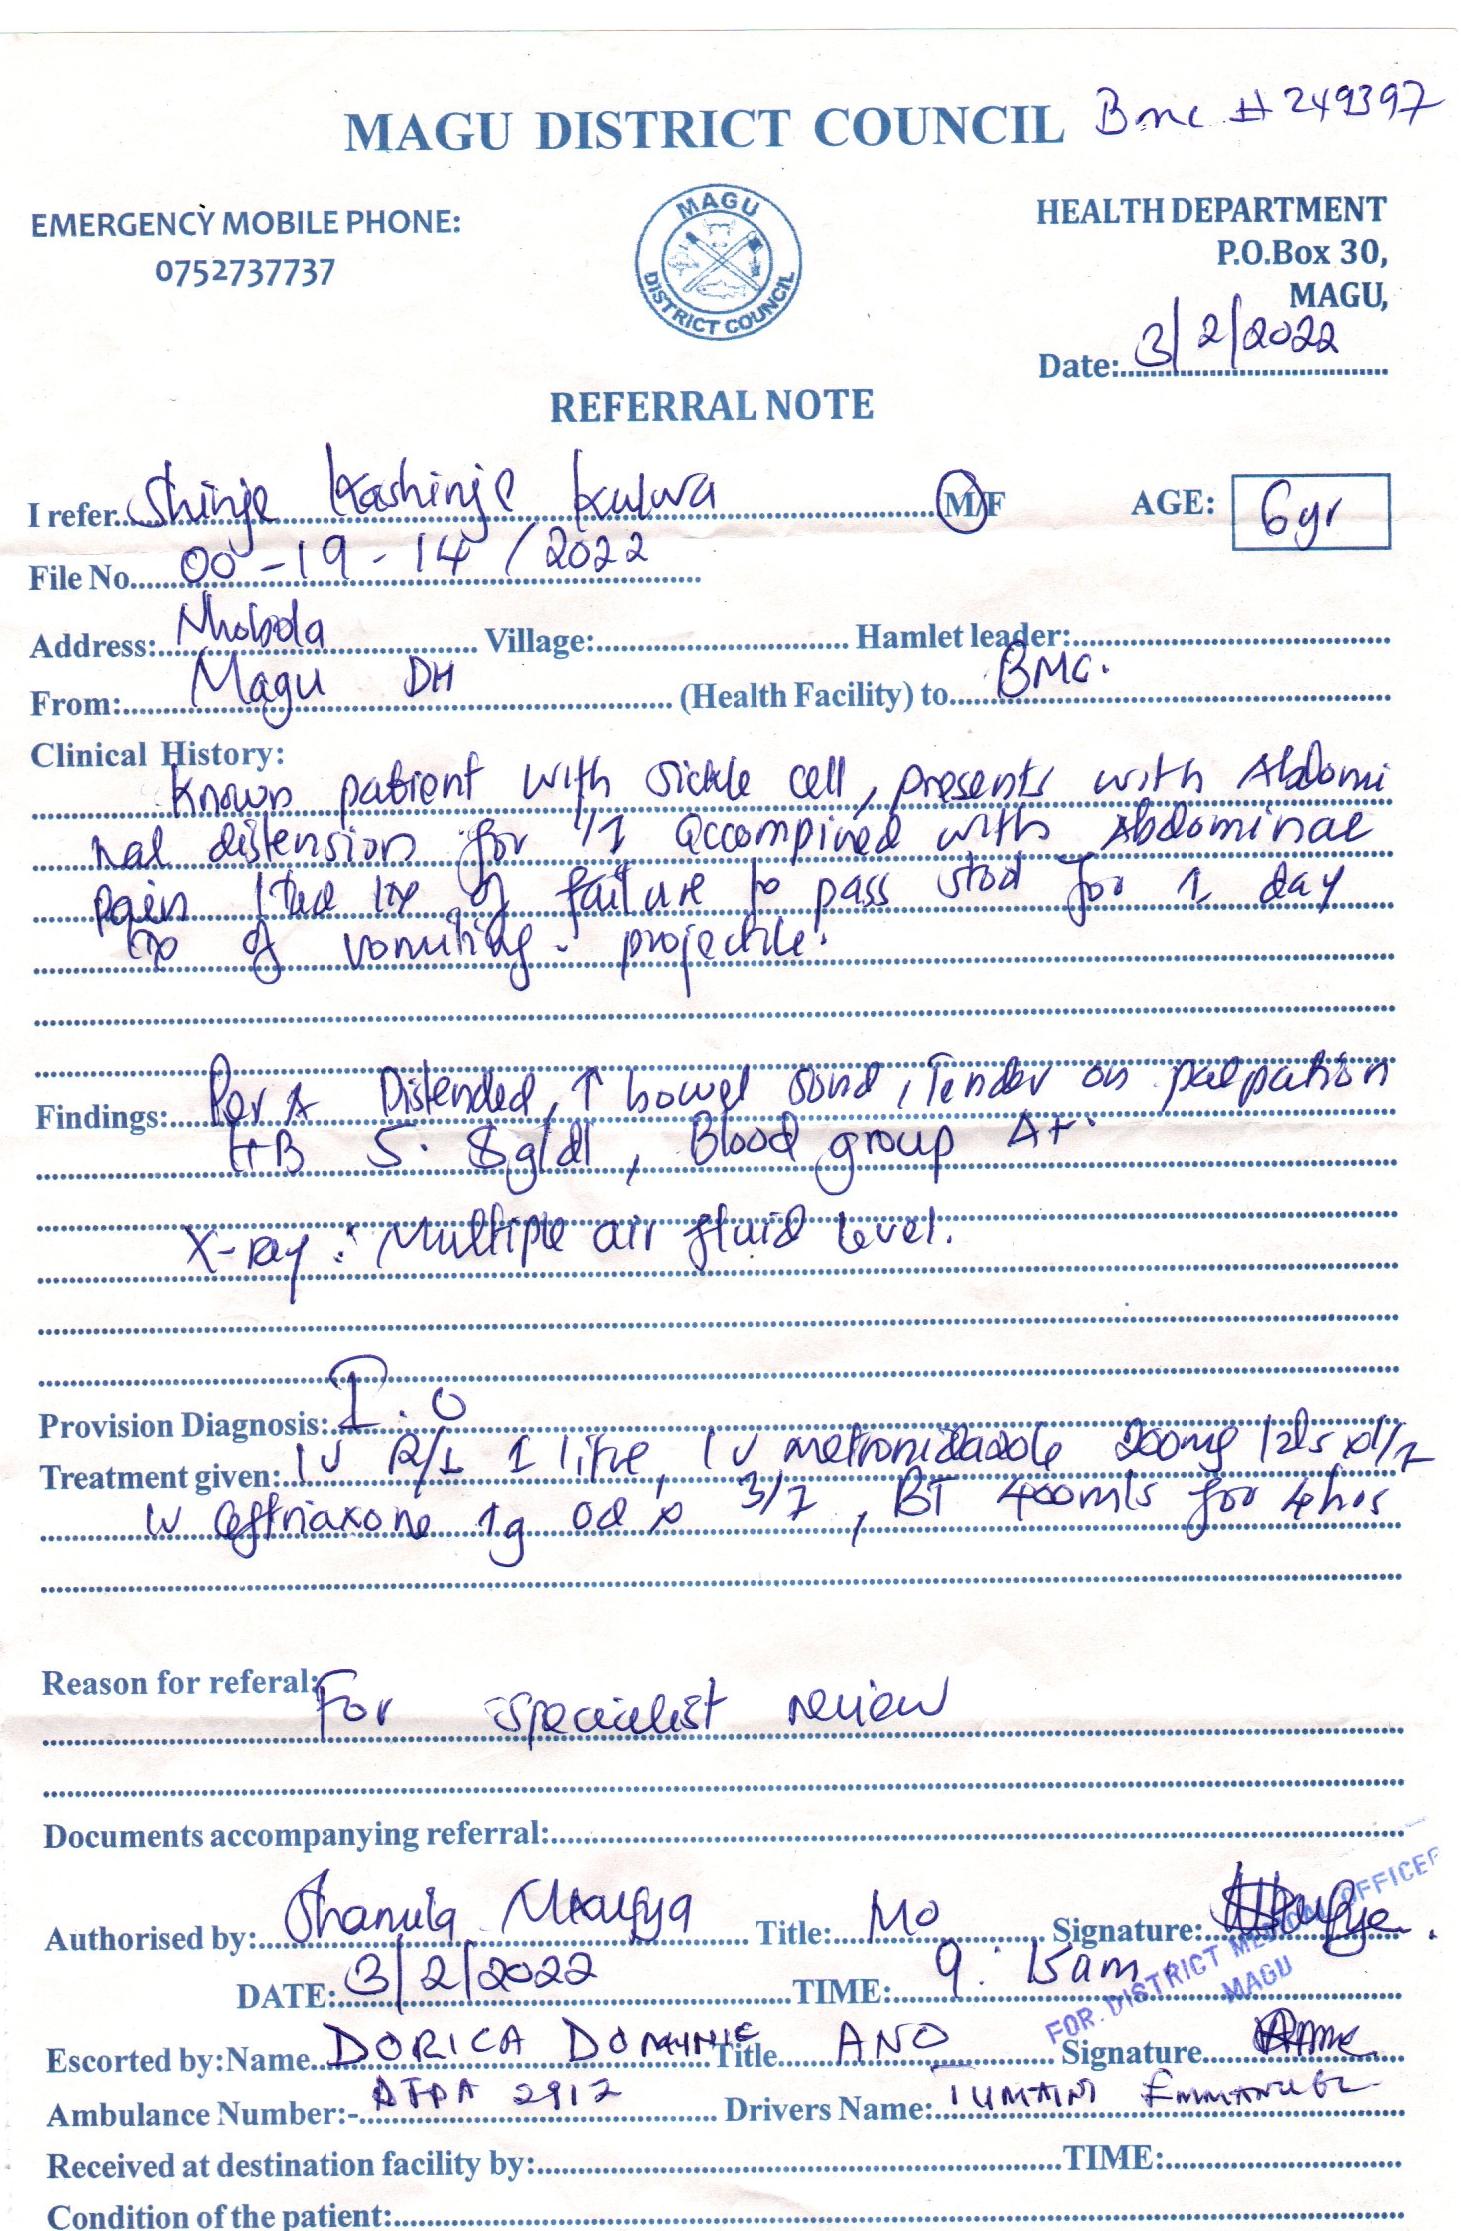 MAGU DISTRICT COUNCIL Bmc # 249397
EMERGENCY MOBILE PHONE:
0752737737
MAGU
DISTRICT COUNCIL
HEALTH DEPARTMENT
P.O.Box 30,
MAGU,
Date: 3/2/2022
REFERRAL NOTE
I refer Shinje Kashinje Kulwa M/F AGE: 6yr
File No. 00-19-14/2022
Address: Village: Hamlet leader:
From: Magu DH (Health Facility) to BMC.
Clinical History:
Known patient with sickle cell, presents with Abdomi
nal distension for 1/7 accompined with Abdominal
pain, Hx of failure to pass stool for 1 day
of vomiting - projectile.
Findings: Per A Distended, ↑ bowel sound, Tender on palpation
HB 5.8g/dl, Blood group A+.
X-ray: Multiple air fluid level.
Provision Diagnosis: I.O
Treatment given: IV R/L 1 litre, IV metronidazole 200mg
IV ceftriaxone 1g od x 3/7, BT 400mls for 4hrs
Reason for referal: For specialist review
Documents accompanying referral:
Authorised by: Title: MO Signature:
DATE: 3/2/2022 TIME: 9:15am
FOR. DISTRICT MEDICAL OFFICER
MAGU
Escorted by:Name DORICA DOMINIC Title ANO Signature
Ambulance Number:- 2912 Drivers Name: TUMAINI EMMANUEL
Received at destination facility by: TIME:
Condition of the patient: